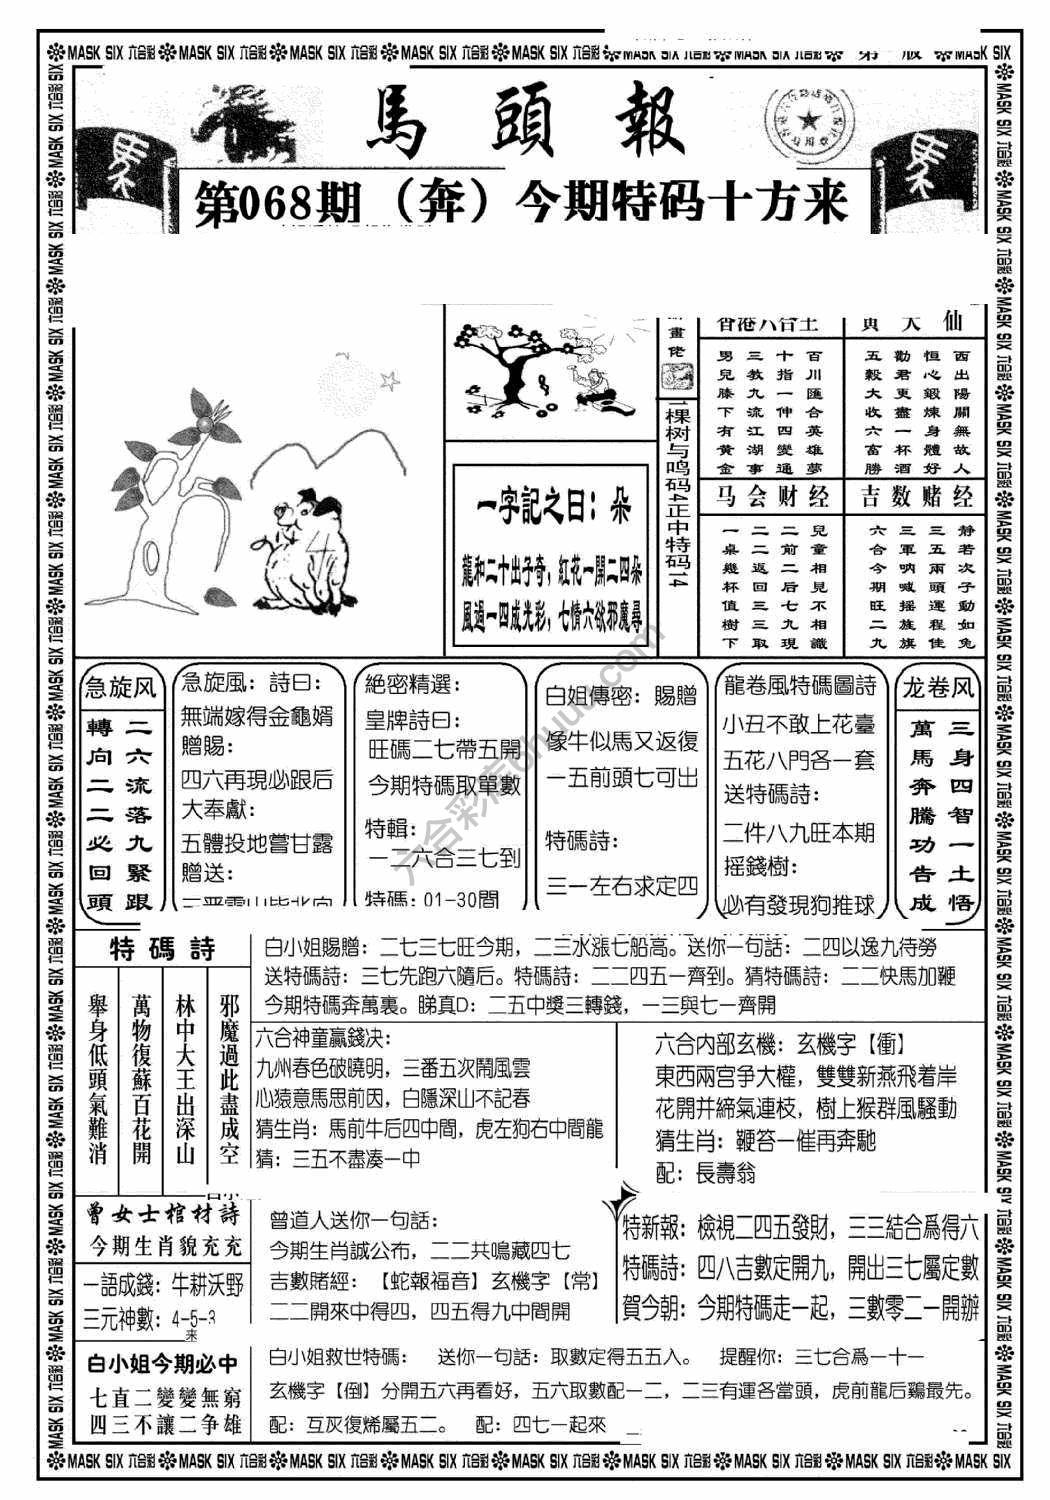 MASK SIX 六合彩 MASK SIX 六合彩 MASK SIX 六合彩 MASK SIX 六合彩 MASK SIX 六合彩
馬頭報
第068期（奔）今期特码十方来
畫佬
一棵树与鸣码4正中特码14
一字記之曰：朵
龍和二十出子奇，紅花一開二四朵
風過一四成光彩，七情六欲邪魔尋
香港六合王
百川匯合英雄夢
十指一伸四變通
三教九流江湖事
男兒膝下有黄金
黄大仙
西出陽關無故人
恒心鍛煉身體好
勸君更盡一杯酒
五穀大收六富勝
马会财经
兒童相見不相識
二前二后七九現
二二返回三三取
一桌幾杯值樹下
吉数赌经
静若次子動如兔
三五兩頭運程佳
三軍呐喊摇旌旗
六合今期旺二九
急旋风
二六流落九緊跟
轉向二二必回頭
急旋風：詩曰：
無端嫁得金龜婿
贈賜：
四六再現必跟后
大奉獻：
五體投地嘗甘露
贈送：
絶密精選：
皇牌詩曰：
旺碼二七帶五開
今期特碼取單數
特輯：
一二六合三七到
特碼：01-30間
白姐傳密：賜贈
像牛似馬又返復
一五前頭七可出
特碼詩：
三一左右求定四
龍卷風特碼圖詩
小丑不敢上花臺
五花八門各一套
送特碼詩：
二件八九旺本期
摇錢樹：
必有發現狗推球
龙卷风
三身四智一土悟
萬馬奔騰功告成
特碼詩
邪魔過此盡成空
林中大王出深山
萬物復蘇百花開
舉身低頭氣難消
白小姐賜贈：二七三七旺今期，二三水漲七船高。送你一句話：二四以逸九待勞
送特碼詩：三七先跑六隨后。特碼詩：二二四五一齊到。猜特碼詩：二二快馬加鞭
今期特碼奔萬裏。睇真D：二五中獎三轉錢，一三與七一齊開
六合神童贏錢决：
九州春色破曉明，三番五次鬧風雲
心猿意馬思前因，白隱深山不記春
猜生肖：馬前牛后四中間，虎左狗右中間龍
猜：三五不盡凑一中
六合内部玄機：玄機字【衝】
東西兩宫争大權，雙雙新燕飛着岸
花開并締氣連枝，樹上猴群風騷動
猜生肖：鞭笞一催再奔馳
配：長壽翁
曾女士棺材詩
今期生肖貌充充
一語成錢：牛耕沃野
三元神數：4-5-3
来
曾道人送你一句話：
今期生肖誠公布，二二共鳴藏四七
吉數賭經：【蛇報福音】玄機字【常】
二二開來中得四，四五得九中間開
特新報：檢視二四五發財，三三結合爲得六
特碼詩：四八吉數定開九，開出三七屬定數
賀今朝：今期特碼走一起，三數零二一開辦
白小姐今期必中
七直二變變無窮
四三不讓二争雄
白小姐救世特碼：　送你一句話：取數定得五五入。　提醒你：三七合爲一十一
玄機字【倒】分開五六再看好，五六取數配一二，二三有運各當頭，虎前龍后鷄最先。
配：互灰復烯屬五二。　配：四七一起來
MASK SIX 六合彩 MASK SIX 六合彩 MASK SIX 六合彩 MASK SIX 六合彩 MASK SIX 六合彩 MASK SIX 六合彩 MASK SIX 六合彩 MASK SIX 六合彩 MASK SIX